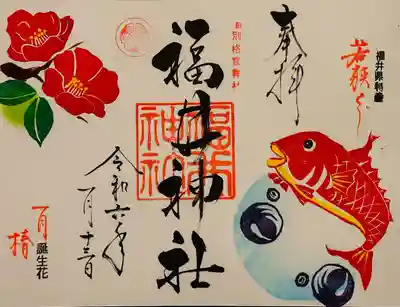 福井県特産
若狭ぐじ
奉拝
旧別格官幣社
福井神社
福井
神社
令和六年
一月十三日
一月
誕生花
椿